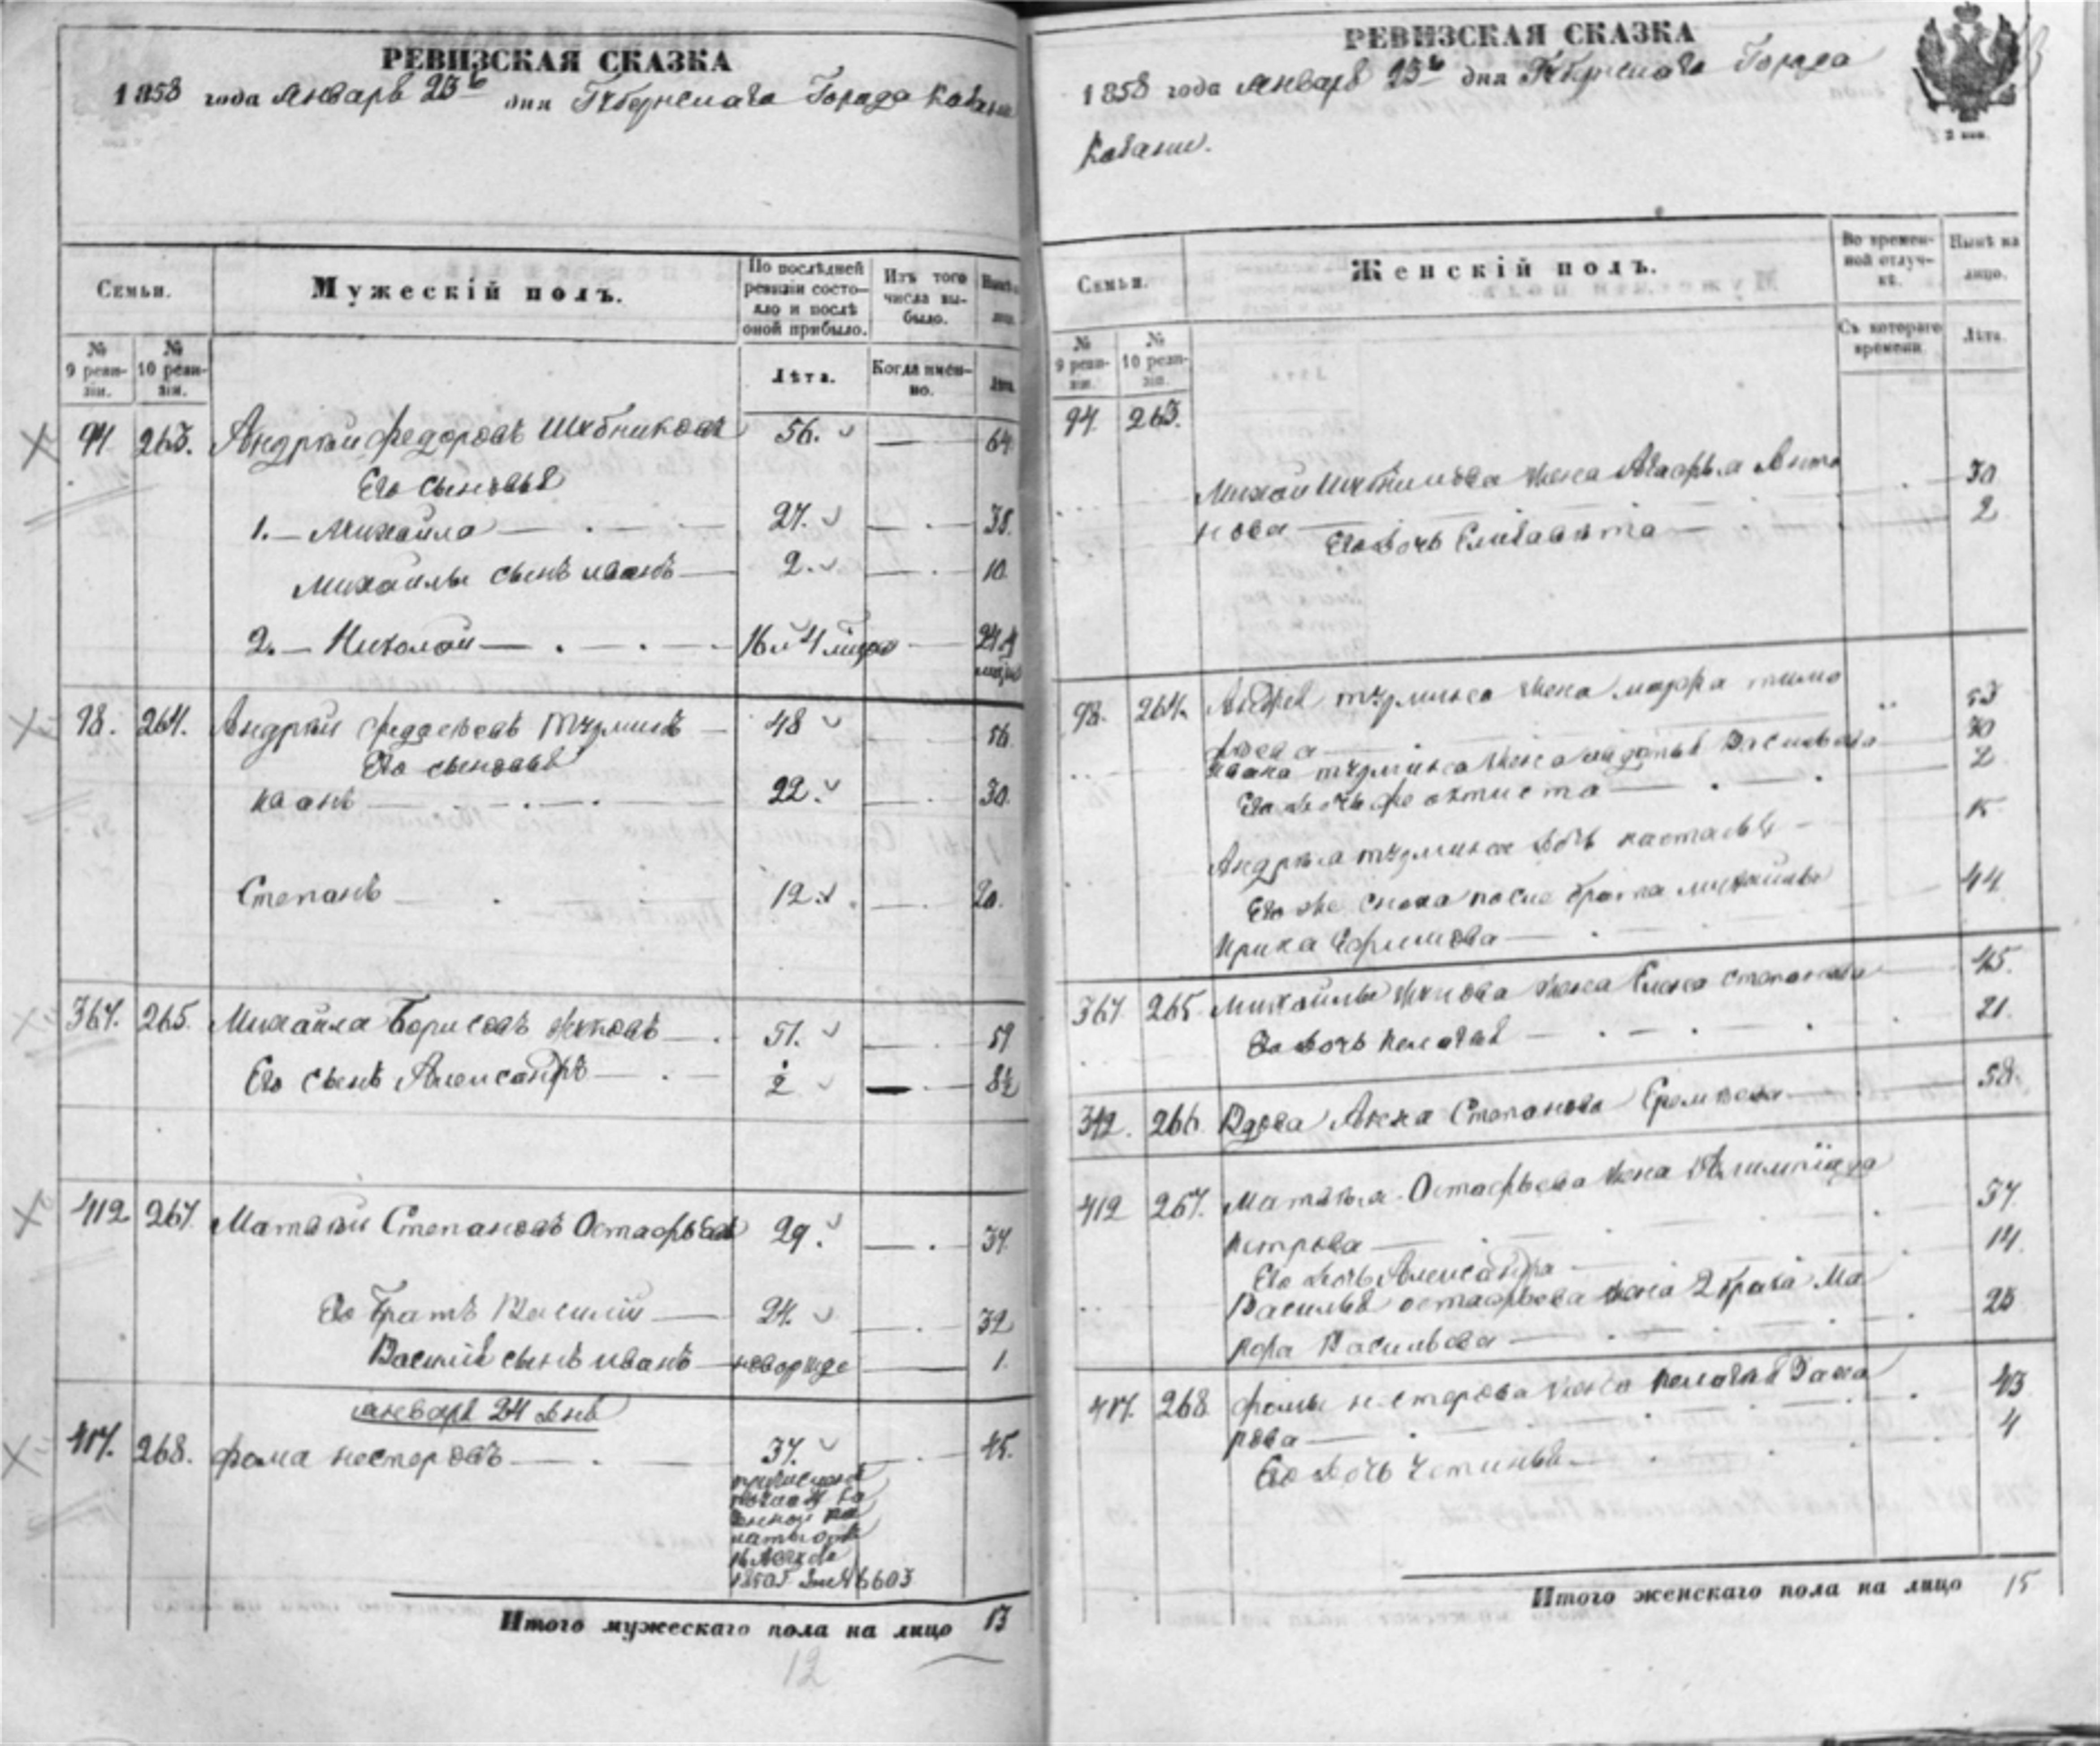 РЕВИЗСКАЯ СКАЗКА
1858 года Января 23ь дня Губернскаго Города Казани
Семьи.
Мужескій полъ.
По послѣдней ревизіи состояло и послѣ оной прибыло.
Изъ того числа выбыло.
№ 9 ревизіи.
№ 10 ревизіи.
Лѣта.
Когда именно.
Лѣта.
94. 263. Андрей Федоровъ 56. — 64
Его сыновья
1. — Михайла — 27. — 35.
Михайлы сынъ Иванъ — 2. — 10
2. — Николай — 16 и 4 24 4
98. 264. Андрей 48 56.
Его сыновья
Иванъ — 22. — 30.
Степанъ — 12. — 20.
367. 265. Михайла Борисовъ — 51. — 59
Его сынъ Александръ — 2 — 8½
412 267. Матвѣй Степановъ Остафьевъ 29. — 37.
Его братъ Василій — 24. — 32
Василія сынъ Иванъ — новорожде — 1.
Января 24 дня
417. 268. Фома Нестеровъ — 37. — 45.
1850 г. за № 6603
Итого мужескаго пола на лицо 13
12
РЕВИЗСКАЯ СКАЗКА
1858 года Января 23ь дня Губернскаго Города
Казани.
2 коп.
Семьи.
Женскій полъ.
Во временной отлучкѣ.
Нынѣ на лицо.
№ 9 ревизіи.
№ 10 ревизіи.
Съ котораго времени.
Лѣта.
94. 263.
жена Агафья Анто
нова — 30
Его дочь Елизавета — 2
98. 264. жена Марфа Тимо
фѣева — 53
Ивана жена Васильева 30
Его дочь Феоктиста — 2
Андрея дочь Настасья — 15
Его же сноха после брата Михайлы
Ирина Ефимова — 44
367 265. Михайлы жена Елена Степанова 45.
Его дочь Пелагея — 21.
392. 266. Вдова Анна Степанова 58.
412 267. Матвѣя Остафьева жена
Петрова — 37.
Его дочь Александра — 14.
Василья Остафьева жена 2 брака Ма
вра Васильева — 25
417. 268. Фомы Нестерова жена Пелагея Заха
рова — 43
Его дочь Устинья — 4
Итого женскаго пола на лицо 15